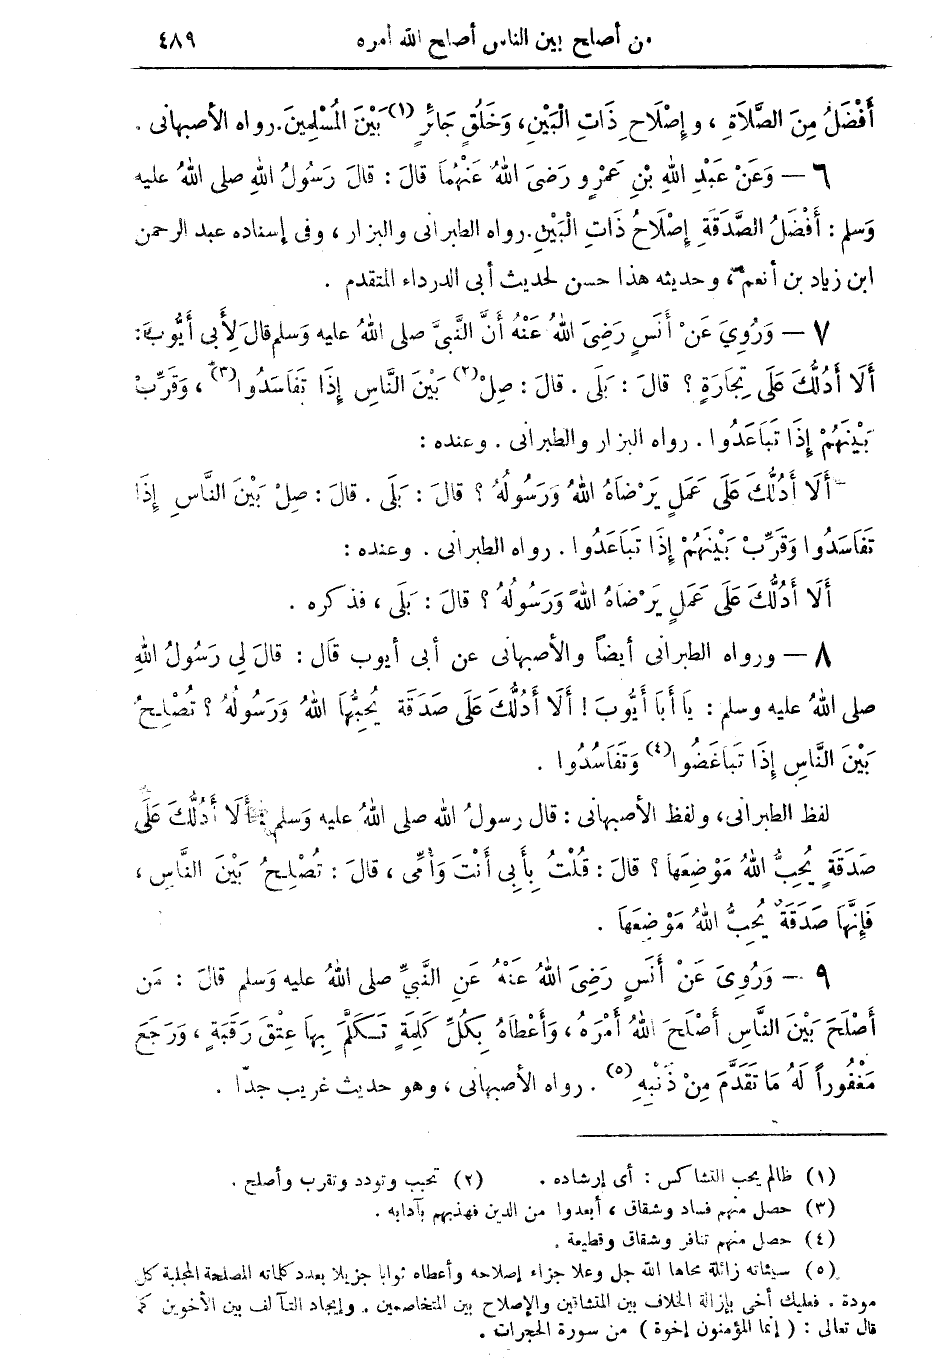 من أصلح بين الناس أصلح الله أمره ٤٨٩
أَفْضَلُ مِنَ الصَّلَاةِ ، وَإِصْلَاحِ ذَاتِ الْبَيْنِ، وَخَلُقٍ جَائِرٍ (١) بَيْنَ الْمُسْلِمِينَ. رواه الأصبهانى .
٦ — وَعَنْ عَبْدِ اللهِ بْنِ عَمْرٍو رَضِىَ اللهُ عَنْهُمَا قَالَ : قَالَ رَسُولُ اللهِ صلى اللهُ عليه
وَسلم : أَفْضَلُ الصَّدَقَةِ إِصْلَاحُ ذَاتِ الْبَيْنِ. رواه الطبرانى والبزار ، وفى إسناده عبد الرحمن
ابن زياد بن أنعم ، وحديثه هذا حسن لحديث أبى الدرداء المتقدم .
٧ — وَرُوِيَ عَنْ أَنَسٍ رَضِىَ اللهُ عَنْهُ أَنَّ النَّبِيَّ صلى اللهُ عليه وَسلم قالَ لِأَبِى أَيُّوبَ :
أَلَا أَدُلُّكَ عَلَى تِجَارَةٍ ؟ قالَ : بَلَى . قالَ : صِلْ (٢) بَيْنَ النَّاسِ إِذَا تَفَاسَدُوا (٣) ، وَقَرِّبْ
بَيْنَهُمْ إِذَا تَبَاعَدُوا . رواه البزار والطبرانى . وعنده :
أَلَا أَدُلُّكَ عَلَى عَمَلٍ يَرْضَاهُ اللهُ وَرَسُولُهُ ؟ قالَ : بَلَى . قالَ : صِلْ بَيْنَ النَّاسِ إِذَا
تَفَاسَدُوا وَقَرِّبْ بَيْنَهُمْ إِذَا تَبَاعَدُوا . رواه الطبرانى . وعنده :
أَلَا أَدُلُّكَ عَلَى عَمَلٍ يَرْضَاهُ اللهُ وَرَسُولُهُ ؟ قالَ : بَلَى ، فذكره .
٨ — ورواه الطبرانى أيضاً والأصبهانى عن أبى أيوب قال : قالَ لِى رَسُولُ اللهِ
صلى اللهُ عليه وسلم : يَا أَبَا أَيُّوبَ ! أَلَا أَدُلُّكَ عَلَى صَدَقَةٍ يُحِبُّهَا اللهُ وَرَسُولُهُ ؟ تُصْلِحُ
بَيْنَ النَّاسِ إِذَا تَبَاغَضُوا (٤) وَتَفَاسَدُوا .
لفظ الطبرانى، ولفظ الأصبهانى : قال رسولُ الله صلى اللهُ عليه وَسلم : أَلَا أَدُلُّكَ عَلَى
صَدَقَةٍ يُحِبُّ اللهُ مَوْضِعَهَا ؟ قالَ : قُلْتُ بِأَبِى أَنْتَ وَأُمِّى ، قالَ : تُصْلِحُ بَيْنَ النَّاسِ ،
فَإِنَّهَا صَدَقَةٌ يُحِبُّ اللهُ مَوْضِعَهَا .
٩ — وَرُوِىَ عَنْ أَنَسٍ رَضِىَ اللهُ عَنْهُ عَنِ النَّبِيِّ صلى اللهُ عليه وَسلم قالَ : مَن
أَصْلَحَ بَيْنَ النَّاسِ أَصْلَحَ اللهُ أَمْرَهُ ، وَأَعْطَاهُ بِكُلِّ كَلِمَةٍ تَكَلَّمَ بِهَا عِتْقَ رَقَبَةٍ ، وَرَجَعَ
مَغْفُوراً لَهُ مَا تَقَدَّمَ مِنْ ذَنْبِهِ (٥) . رواه الأصبهانى ، وهو حديث غريب جدّا .
(١) ظالم يحب التشاكس : أى إرشاده . (٢) تحبب وتودد وتقرب وأصلح .
(٣) حصل منهم فساد وشقاق ، أبعدوا من الدين فهذبهم بآدابه .
(٤) حصل منهم تنافر وشقاق وقطيعة .
(٥) سيئاته زائلة محاها الله جل وعلا جزاء إصلاحه وأعطاه ثوابا جزيلا بعدد كلماته المصلحة المجلبة كل
مودة . فعليك أخى بإزالة الخلاف بين المتشاتين والإصلاح بين المتخاصمين . وإيجاد التآلف بين الأخوين كما
قال تعالى : ( إنما المؤمنون إخوة ) من سورة الحجرات .